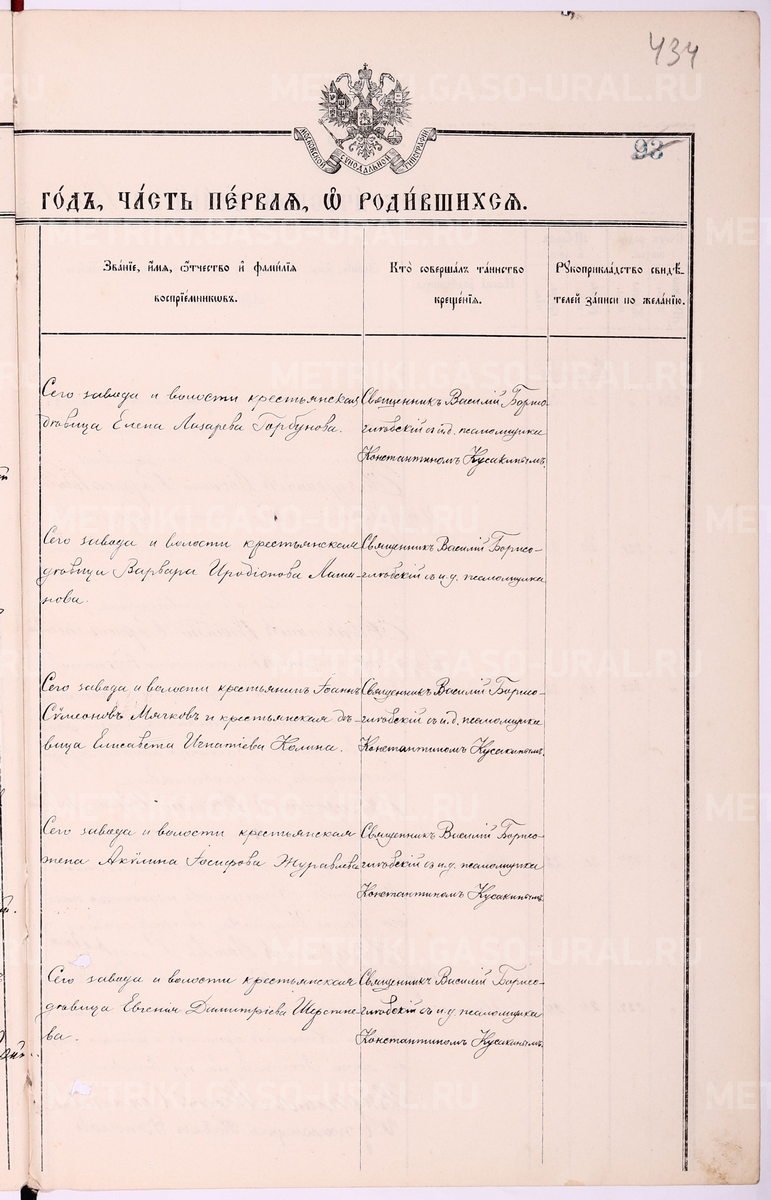 434
93
МОСКОВСКОЙ СѴНОДАЛЬНОЙ ТИПОГРАФІИ
ГО́ДЪ, ЧА́СТЬ ПЕ́РВАѦ, Ѡ҆ РОДИ́ВШИХСѦ.
Зва́нїе, и҆́мѧ, ѻ҆́тчество и҆ фами́лїѧ
воспрїе́мникѡвъ.
Кто̀ соверша́лъ та́инство
креще́нїѧ.
Рꙋкоприкла́дство свидѣ́-
телей за́писи по жела́нїю.
Сего завода и волости крестьянская
дѣвица Елена Лазарева Горбунова.
Священникъ Василій Борисо-
глѣбскій съ и.д. псаломщика
Константиномъ Кусакинымъ.
Сего завода и волости крестьянская
дѣвица Варвара Иродіонова
нова.
Священникъ Василій Борисо-
глѣбскій съ и.д. псаломщика
Сего завода и волости крестьянинъ Іоаннъ
Сѵмеоновъ Мягковъ и крестьянская дѣ-
вица Елисавета Игнатіева Колина.
Священникъ Василій Борисо-
глѣбскій съ и.д. псаломщика
Константиномъ Кусакинымъ.
Сего завода и волости крестьянская
жена Акѵлина Іосифова Журавлева
Священникъ Василій Борисо-
глѣбскій съ и.д. псаломщика
Константиномъ Кусакинымъ.
Сего завода и волости крестьянская
дѣвица Евгенія Димитріева Шерстне-
ва.
Священникъ Василій Борисо-
глѣбскій съ и.д. псаломщика
Константиномъ Кусакинымъ.
METRIKI.GASO-URAL.RU